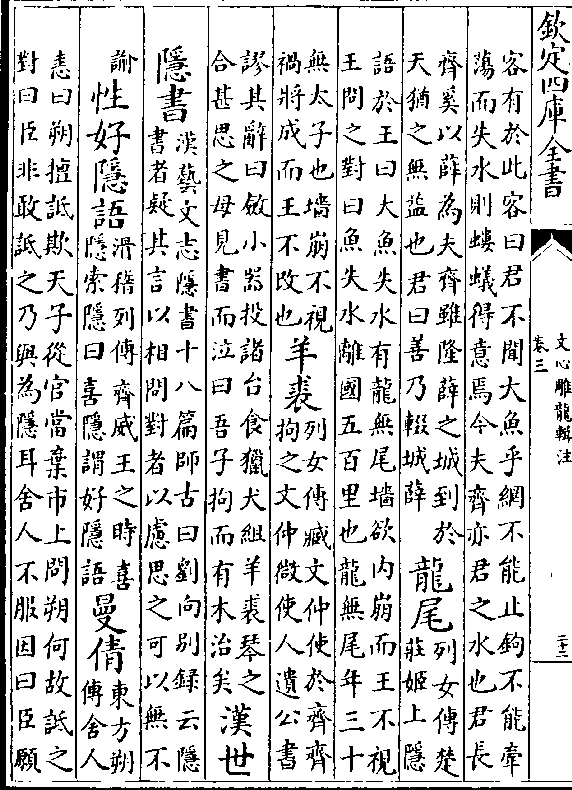 欽定四庫全書
文心雕龍輯注
卷三
客有於此客曰君不聞大魚乎網不能止鉤不能牽
蕩而失水則螻蟻得意焉今夫齊亦君之水也君長
齊奚以薛為夫齊雖隆薛之城到於
天猶之無益也君曰善乃輟城薛
龍尾
列女傳楚
莊姬上隱
語於王曰大魚失水有龍無尾墻欲内崩而王不視
王問之對曰魚失水離國五百里也龍無尾年三十
無太子也墻崩不視
禍將成而王不改也
羊裘
列女傳臧文仲使於齊齊
拘之文仲微使人遺公書
謬其辭曰斂小器投諸台食獵犬組羊裘琴之
合甚思之母見書而泣曰吾子拘而有木治矣
漢世
隱書
漢藝文志隱書十八篇師古曰劉向别録云隱
書者疑其言以相問對者以慮思之可以無不
諭
性好隱語
滑稽列傳齊威王之時喜
隱索隱曰喜隱謂好隱語
曼倩
東方朔
傳舍人
恚曰朔擅詆欺天子從官當棄市上問朔何故詆之
對曰臣非敢詆之乃與為隱耳舍人不服因曰臣願